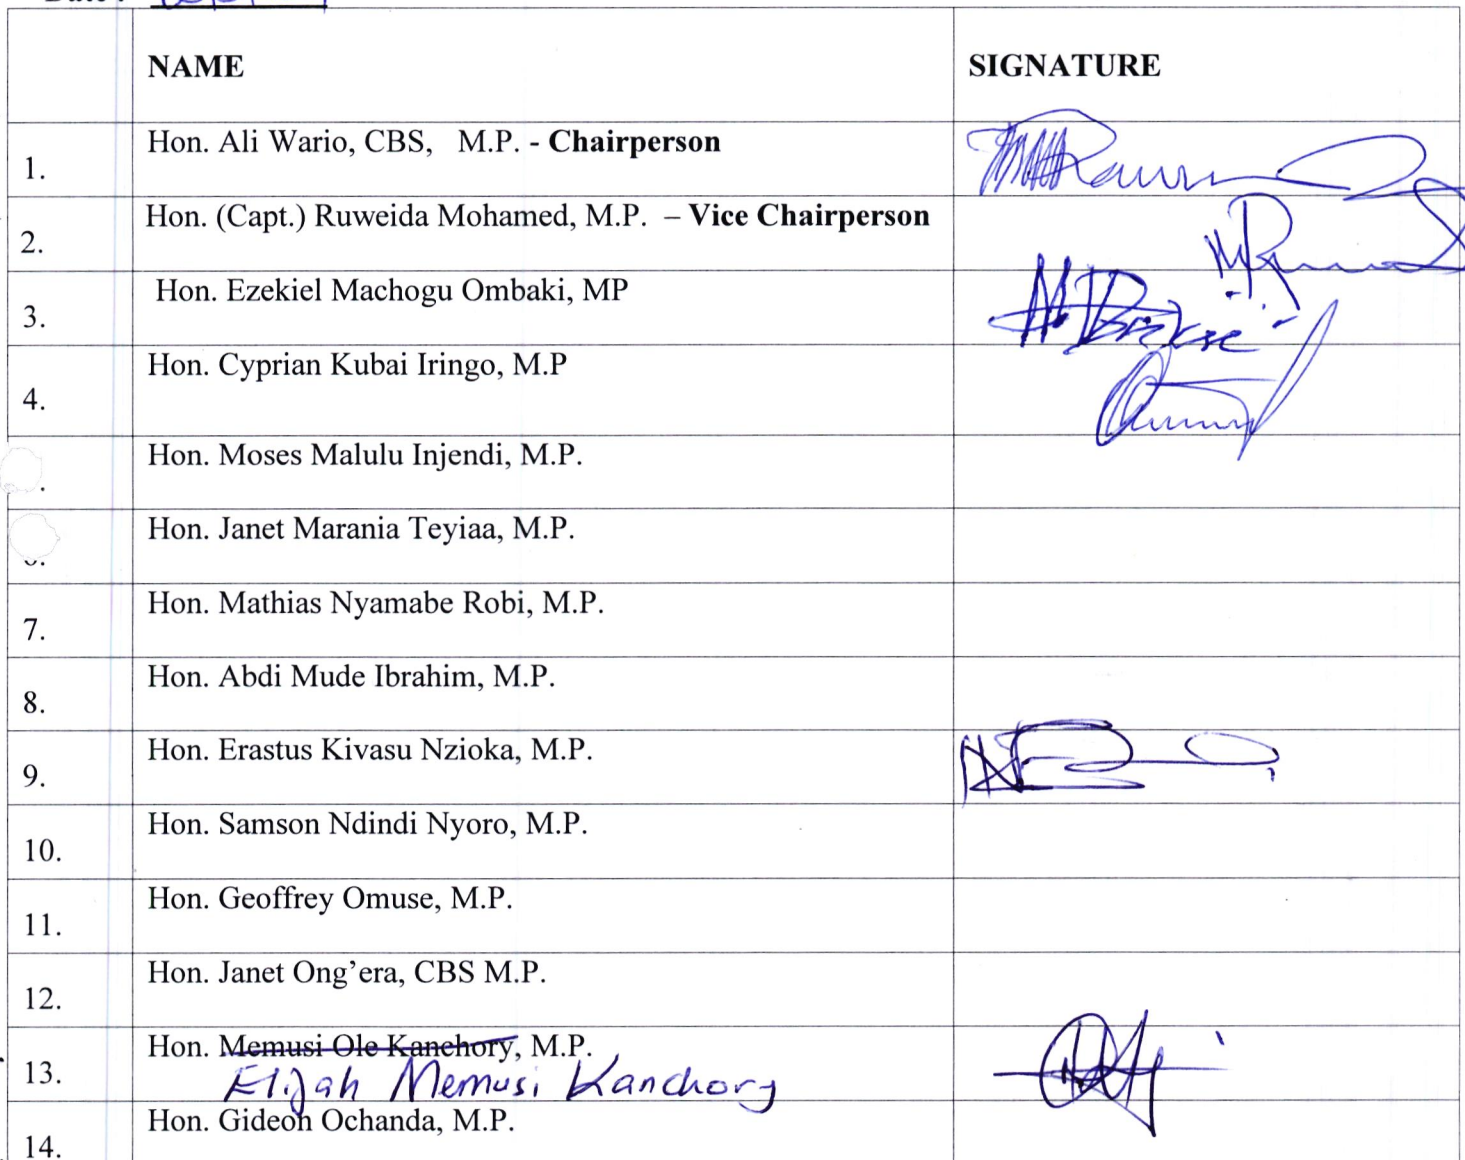 NAME SIGNATURE
1. Hon. Ali Wario, CBS, M.P. - Chairperson
2. Hon. (Capt.) Ruweida Mohamed, M.P. – Vice Chairperson
3. Hon. Ezekiel Machogu Ombaki, MP
4. Hon. Cyprian Kubai Iringo, M.P
Hon. Moses Malulu Injendi, M.P.
Hon. Janet Marania Teyiaa, M.P.
7. Hon. Mathias Nyamabe Robi, M.P.
8. Hon. Abdi Mude Ibrahim, M.P.
9. Hon. Erastus Kivasu Nzioka, M.P.
10. Hon. Samson Ndindi Nyoro, M.P.
11. Hon. Geoffrey Omuse, M.P.
12. Hon. Janet Ong’era, CBS M.P.
13. Hon. Memusi Ole Kanchory, M.P.
Elijah Memusi Kanchory
14. Hon. Gideon Ochanda, M.P.